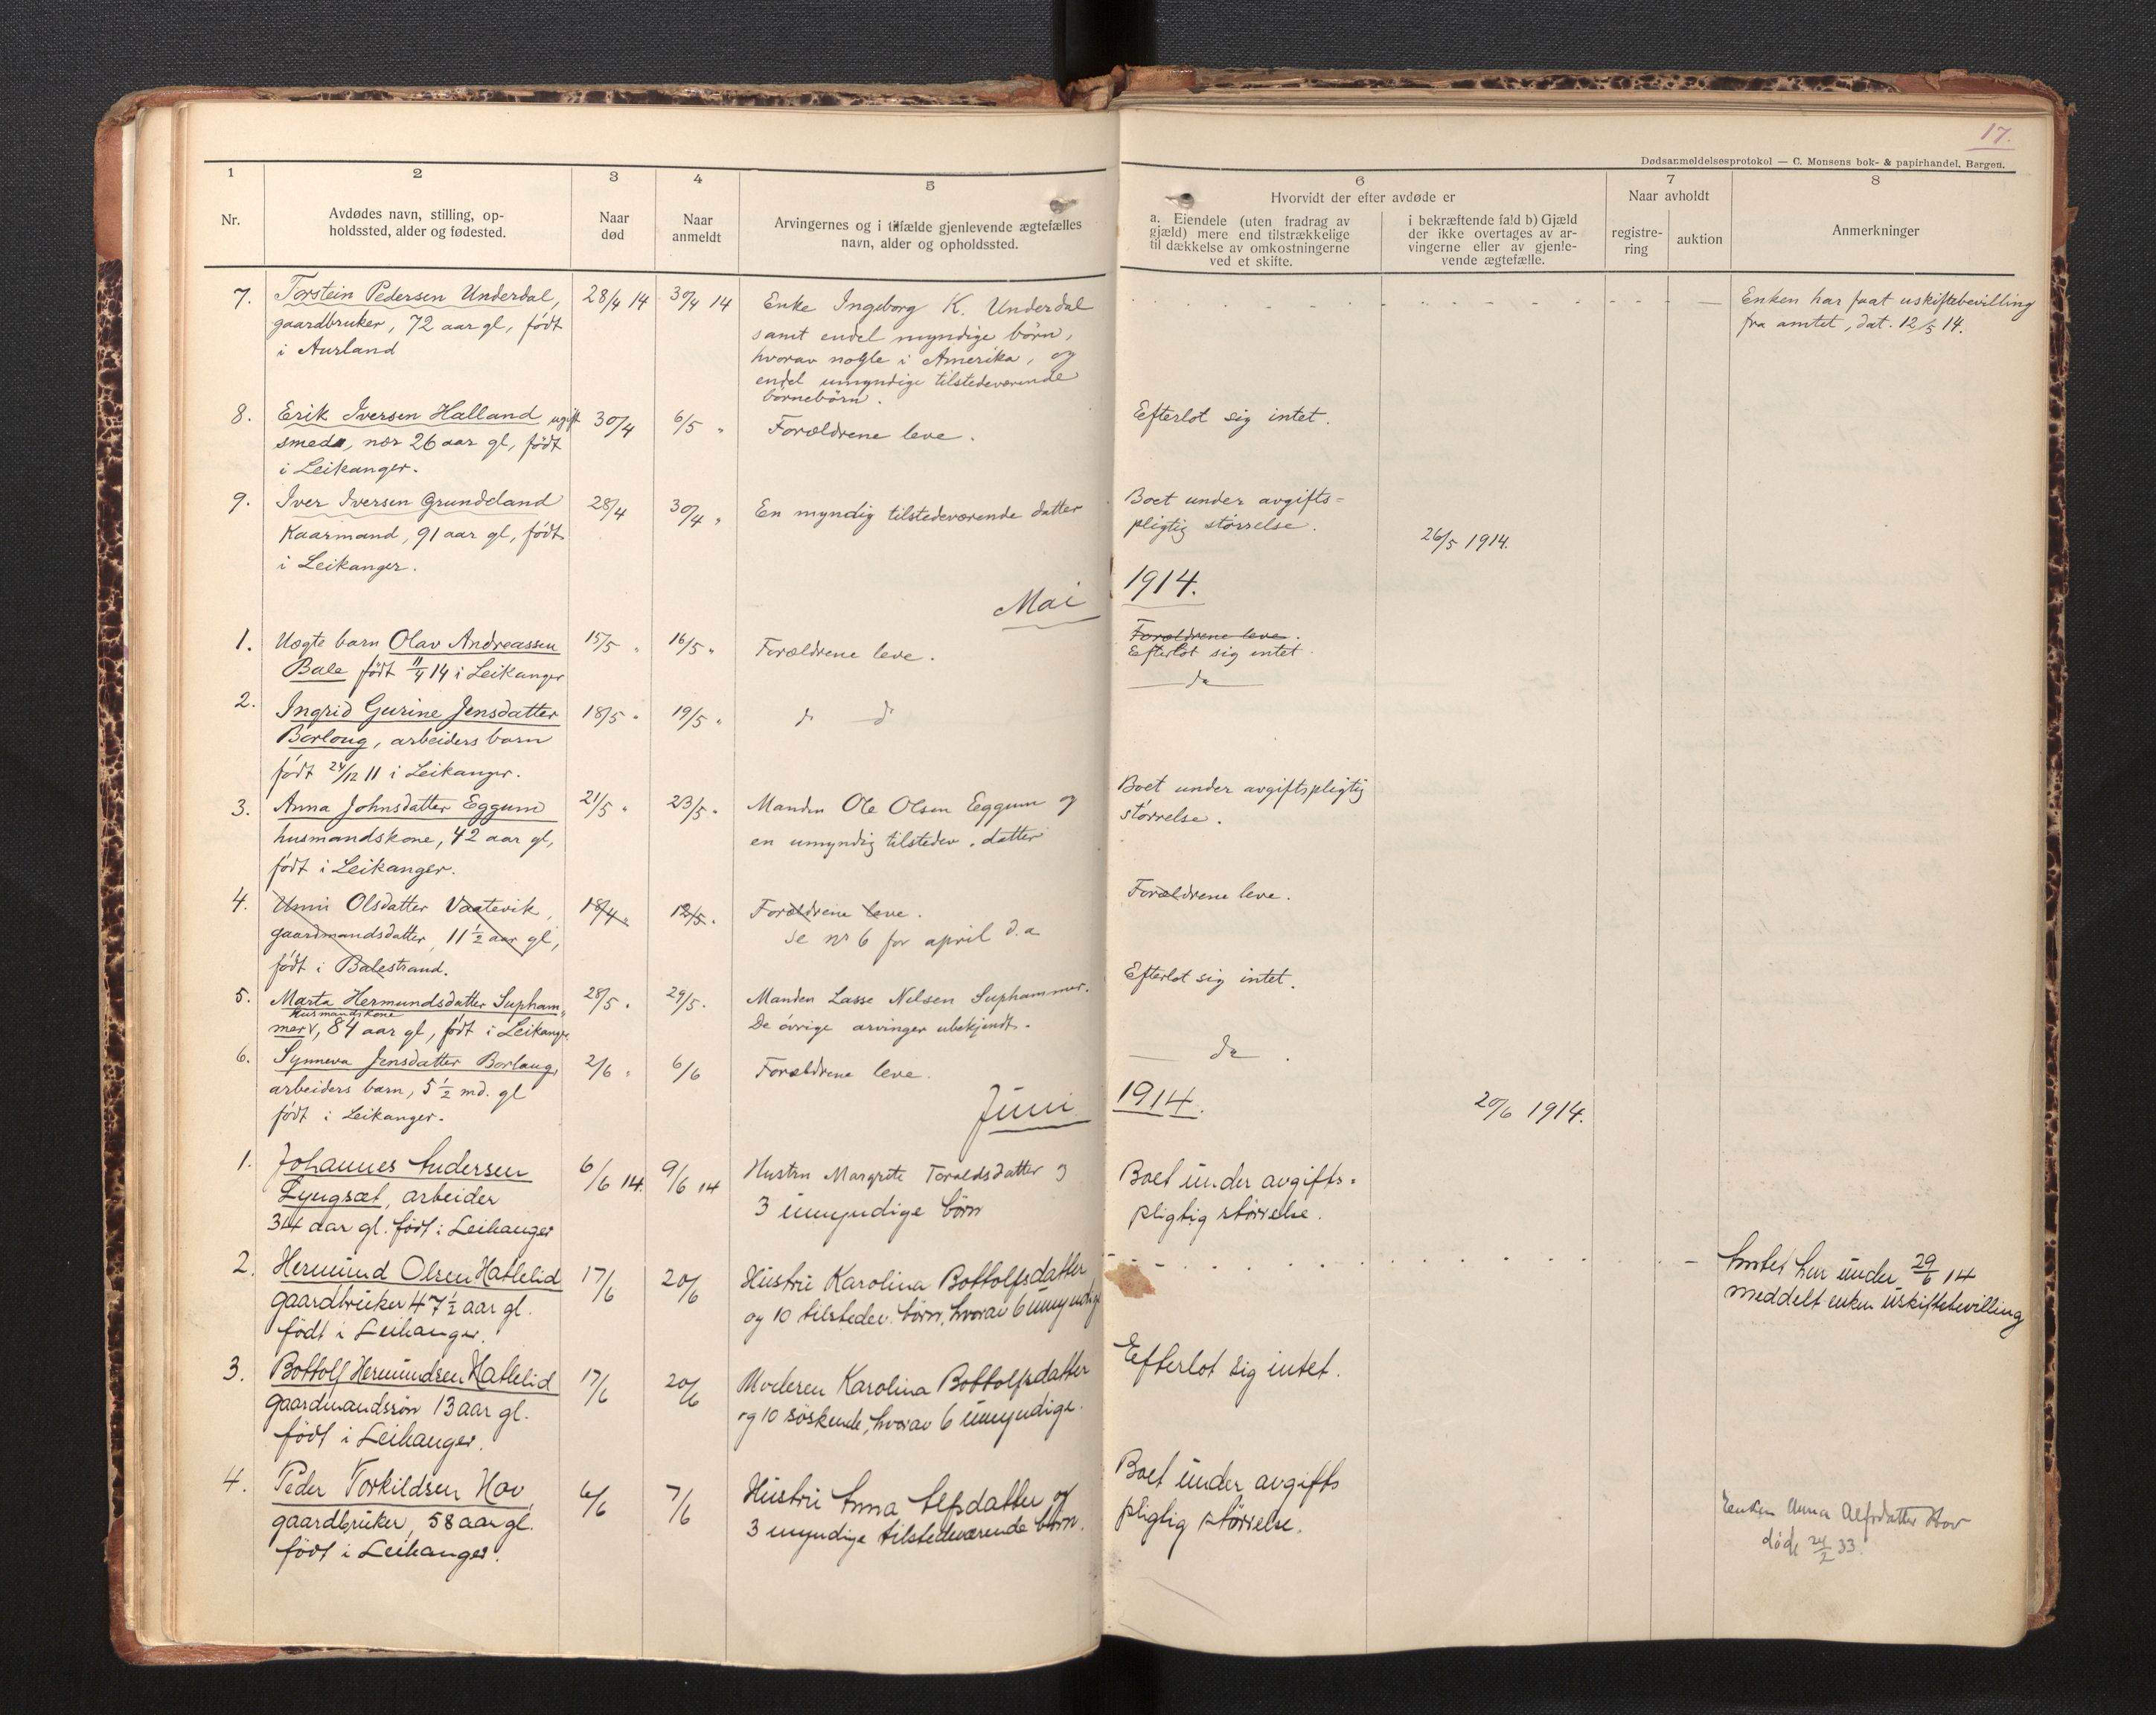 17.
Dødsanmeldelsesprotokol — C. Monsens bok- & papirhandel, Bergen.
1
2
3
4
5
6
7
8
Nr.
Avdødes navn, stilling, op-
holdssted, alder og fødested.
Naar
død
Naar
anmeldt
Arvingernes og i tilfælde gjenlevende ægtefælles
navn, alder og opholdssted.
Hvorvidt der efter avdøde er
a. Eiendele (uten fradrag av
gjæld) mere end tilstrækkelige
til dækkelse av omkostningerne
ved et skifte.
i bekræftende fald b) Gjæld
der ikke overtages av ar-
vingerne eller av gjenle-
vende ægtefælle.
Naar avholdt
registre-
ring
auktion
Anmerkninger
7. Torstein Pedersen Underdal,
gaardbruker, 72 aar gl, født
i Aurland
28/4 14
30/4 14
Enke Ingeborg K. Underdal
samt endel myndige børn,
hvorav nogle i Amerika, og
endel umyndige tilstedeværende
børnebørn.
Enken har faat uskiftebevilling
fra amtet, dat. 12/5 14.
8. Erik Iversen Halland ugift
smed, nær 26 aar gl, født
i Leikanger.
30/4
6/5 "
Forældrene leve.
Efterlot sig intet.
9. Iver Iversen Grundeland
Kaarmand, 91 aar gl, født
i Leikanger.
28/4
30/4 "
En myndig tilstedeværende datter
Boet under avgifts=
pligtig størrelse.
26/5 1914.
Mai 1914.
1. Uægte barn Olav Andreassen
Bale født 11/4 14 i Leikanger
15/5 "
16/5 "
Forældrene leve.
Forældrene leve.
Efterlot sig intet.
2. Ingrid Gurine Jensdatter
Borlaug, arbeiders barn
født 24/12 11 i Leikanger.
18/5 "
19/5 "
do do
do
3. Anna Johnsdatter Eggum
husmandskone, 42 aar gl,
født i Leikanger.
21/5 "
23/5 "
Manden Ole Olsen Eggum og
en umyndig tilstedev. datter
Boet under avgiftspligtig
størrelse.
4. Unni Olsdatter Vaatevik,
gaardmandsdatter, 11 1/2 aar gl,
født i Balestrand.
18/4 "
12/5 "
Forældrene leve.
se nr 6 for april d.a
Forældrene leve.
5. Marta Hermundsdatter Supham-
husmandskone
mer, 84 aar gl, født i Leikanger.
28/5 "
29/5 "
Manden Lasse Nelsen Suphammer.
De øvrige arvinger ubekjendt.
Efterlot sig intet.
6. Synneva Jensdatter Borlaug,
arbeiders barn, 5 1/2 md. gl
født i Leikanger.
2/6 "
6/6
Forældrene leve.
do
20/6 1914.
Juni 1914.
1. Johannes Andersen
Lyngsæt, arbeider
34 aar gl. født i Leikanger
6/6 14.
9/6 14
Hustru Margrete Toraldsdatter og
3 umyndige børn
Boet under avgifts-
pligtig størrelse.
2. Hermund Olsen Hatlelid
gaardbruker 47 1/2 aar gl.
født i Leikanger.
17/6
20/6
Hustru Karolina Bottolfsdatter
og 10 tilstedev. børn, hvorav 6 umyndige
Amtet har under 29/6 14
meddelt enken uskiftebevilling
3. Bottolf Hermundsen Hatlelid
gaardmandssøn 13 aar gl.
født i Leikanger.
17/6
20/6
Moderen Karolina Bottolfsdatter
og 10 søskende, hvorav 6 umyndige.
Efterlot sig intet.
4. Peder Torkildsen Hov,
gaardbruker, 58 aar gl.
født i Leikanger.
6/6
7/6
Hustru Anna Alfsdatter og
3 myndige tilstedeværende børn.
Boet under avgifts
pligtig størrelse.
Enken Anna Alfsdatter Hov
døde 24/2 33.